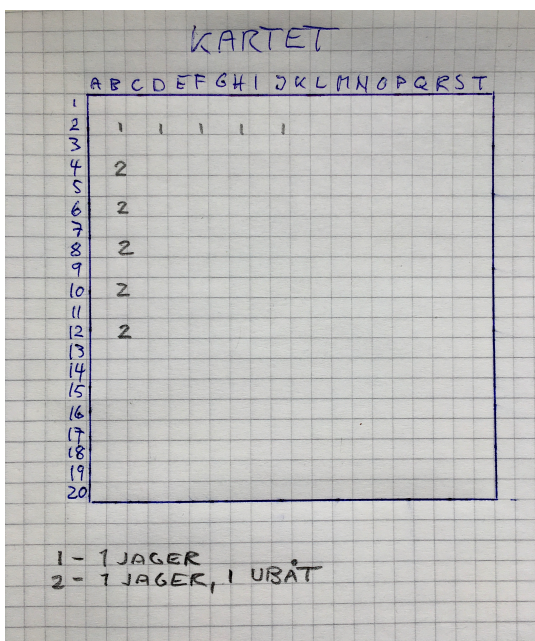 KARTET
A B C D E F G H I J K L M N O P Q R S T
1
2 1 1 1 1 1
3
4 2
5
6 2
7
8 2
9
10 2
11
12 2
13
14
15
16
17
18
19
20
1 - 1 JAGER
2 - 1 JAGER, 1 UBÅT